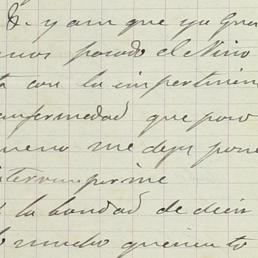 y aun que ya
pasado el Niño
con la impertinen
enfermedad que poro
me deja pone
interrumpirme
la bondad de decir
mucho que